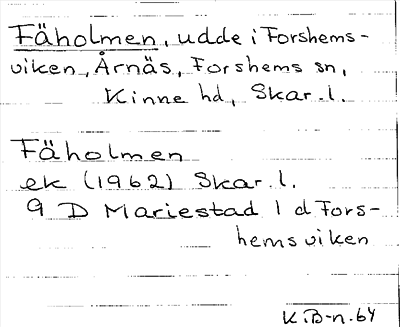 Fäholmen, udde i Forshems-
viken, Årnäs, Forshems sn,
Kinne hd, Skar.l.
Fäholmen
ek (1962) Skar.l.
9 D Mariestad 1 d Fors-
hemsviken
K.B-n.64